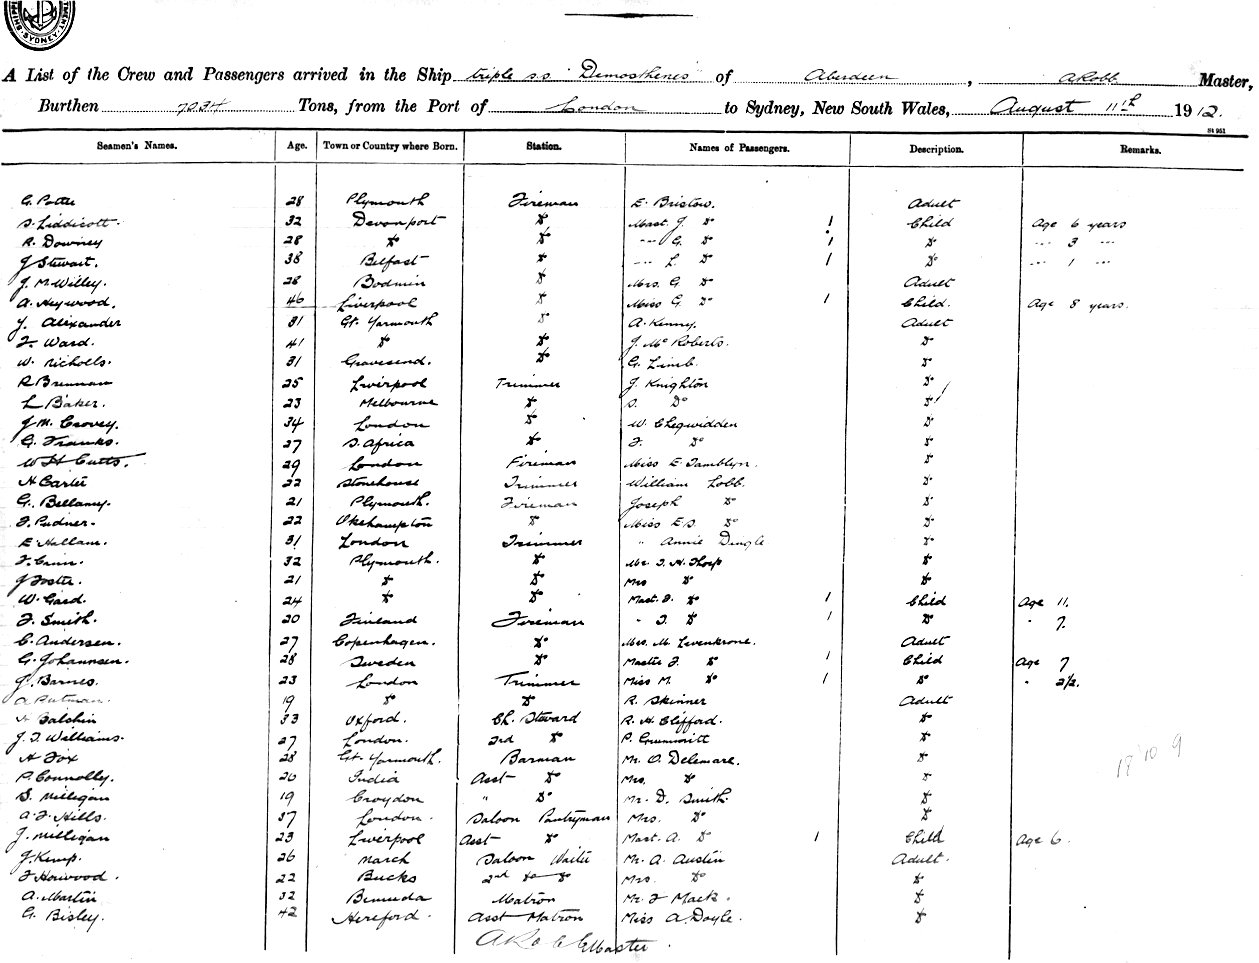 SHIPPING
SYDNEY
A List of the Crew and Passengers arrived in the Ship triple s.s. "Demosthenes" of Aberdeen, A Robb Master,
Burthen 7234 Tons, from the Port of London to Sydney, New South Wales, August 11th 1912.
St 951
Seamen's Names. Age. Town or Country where Born. Station. Names of Passengers. Description. Remarks.
G. Potter 28 Plymouth Fireman E. Bristow. Adult
S. Liddicott. 32 Devonport Do Mast. J. Do 1 Child Age 6 years
R. Downey 28 Do Do " G. Do 1 Do " 3 "
J Stewart. 38 Belfast Do " L. Do 1 Do " 1 "
J. McWilley. 28 Bodmin Do Mrs. G Do Adult
A. Heywood. 46 Liverpool Do Miss G Do 1 Child. Age 8 years.
J. Alexander 31 Gt. Yarmouth Do A. Kenny. Adult
F. Ward. 41 Do Do J. Mc Roberts. Do
W. Nicholls. 31 Gravesend. Do G. Limb. Do
R Brennan 25 Liverpool Trimmer J. Knighton Do
L Baker. 23 Melbourne Do S. Do Do
J. M. Covey. 34 London Do W. Chegwidden Do
G. Franks. 27 S. Africa Do F. Do Do
W H Cutts. 29 London Fireman Miss E. Tamblyn. Do
H Carter 22 Stonehouse Trimmer William Lobb. Do
G. Bellamy. 21 Plymouth. Fireman Joseph Do Do
F. Pudner. 22 Okehampton Do Miss E.S. Do Do
E. Hallam. 31 London Trimmer " Annie Dingle Do
F. Cann. 32 Plymouth. Do Mr. T. H. Thorp Do
J Foster. 21 Do Do Mrs Do Do
W. Gard. 24 Do Do Mast. F. Do 1 Child Age 11.
F. Smith. 20 Finland Fireman " T. Do 1 Do " 7.
C. Andersen. 27 Copenhagen. Do Mrs. M. Levenkrone. Adult
G. Johannsen. 28 Sweden Do Master F. Do 1 Child Age 7
J. Barnes. 23 London Trimmer Miss M. Do 1 Do " 2½.
A Putman. 19 Do Do R. Skinner Adult
H Balshin 33 Oxford. Ch. Steward R. H. Clifford. Do
J. T. Williams. 27 London. 2nd Do P. Grummitt Do
H Fox 28 Gt. Yarmouth. Barman Mr. O. Delemare. Do
P. Connolly. 20 India Asst Do Mrs. Do Do
S. Milligan 19 Croydon " Do Mr. D. Smith. Do
A. F. Hills. 37 London. Saloon Pantryman Mrs. Do Do
J. Milligan 23 Liverpool Asst Do Mast. A. Do 1 Child Age 6.
J. Kemp. 26 March Saloon Waiter Mr. A. Austin Adult.
F Horwood. 22 Bucks 2nd Do Do Mrs. Do Do
A. Martin 32 Bermuda Matron Mr. F Mack. Do
G. Bisley. 42 Hereford. Asst Matron Miss A. Doyle. Do
A Robb Master
18 10 9